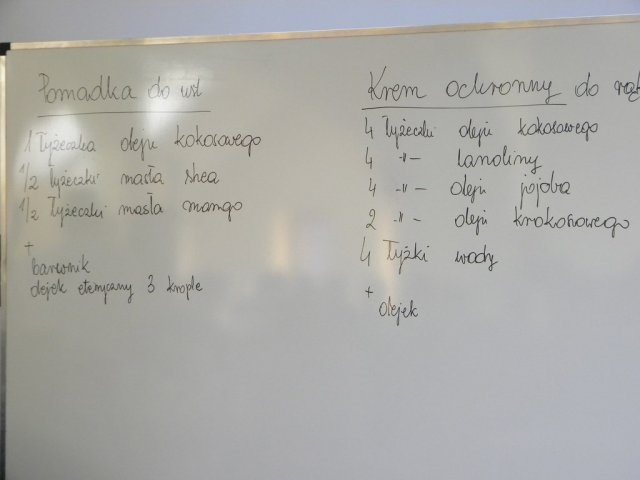 Pomadka do ust
1 łyżeczka oleju kokosowego
1/2 łyżeczki masła shea
1/2 łyżeczki masła mango
+
barwnik
olejek eteryczny 3 krople
Krem ochronny do rąk
4 łyżeczki oleju kokosowego
4 -"- lanoliny
4 -"- oleju jojoba
2 -"- oleju krokoszowego
4 łyżki wody
+
olejek